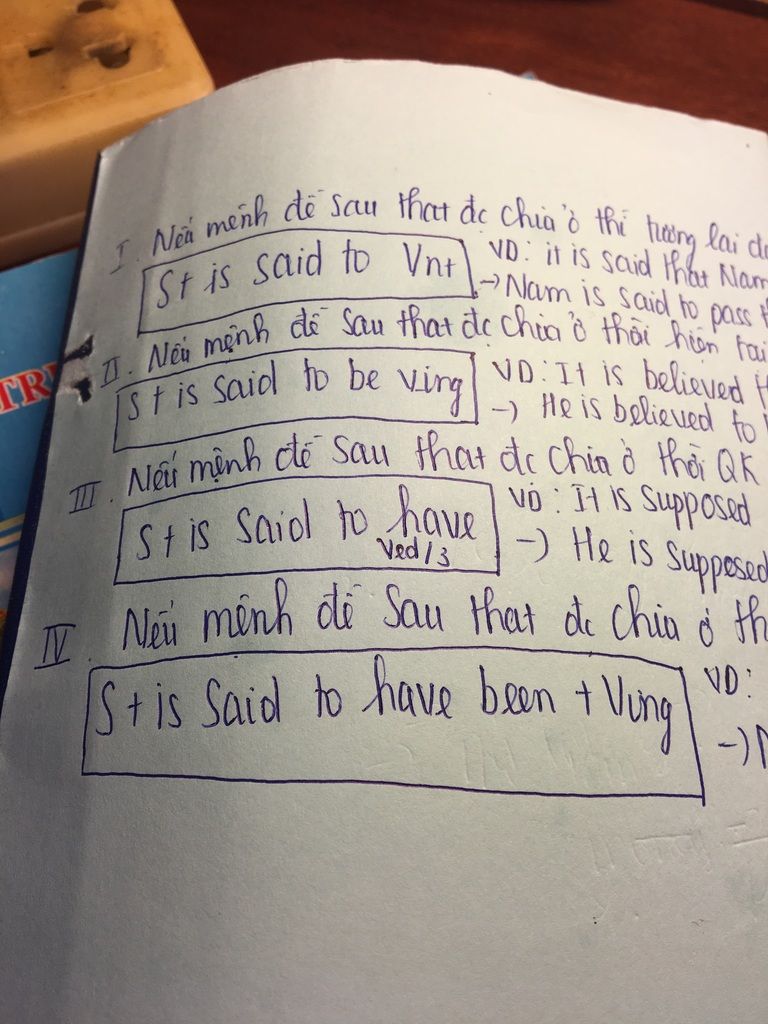 I. Nếu mệnh đề sau that đc chia ở thì tương lai
S + is said to Vnt
VD: it is said that Nam
→ Nam is said to pass
II. Nếu mệnh đề sau that đc chia ở thời hiện tại
S + is said to be ving
VD: It is believed
→ He is believed to
III. Nếu mệnh đề sau that đc chia ở thời QK
S + is said to have
Ved/3
VD: It is supposed
→ He is supposed
IV. Nếu mệnh đề sau that đc chia ở th
S + is said to have been + Ving
VD:
→
TR